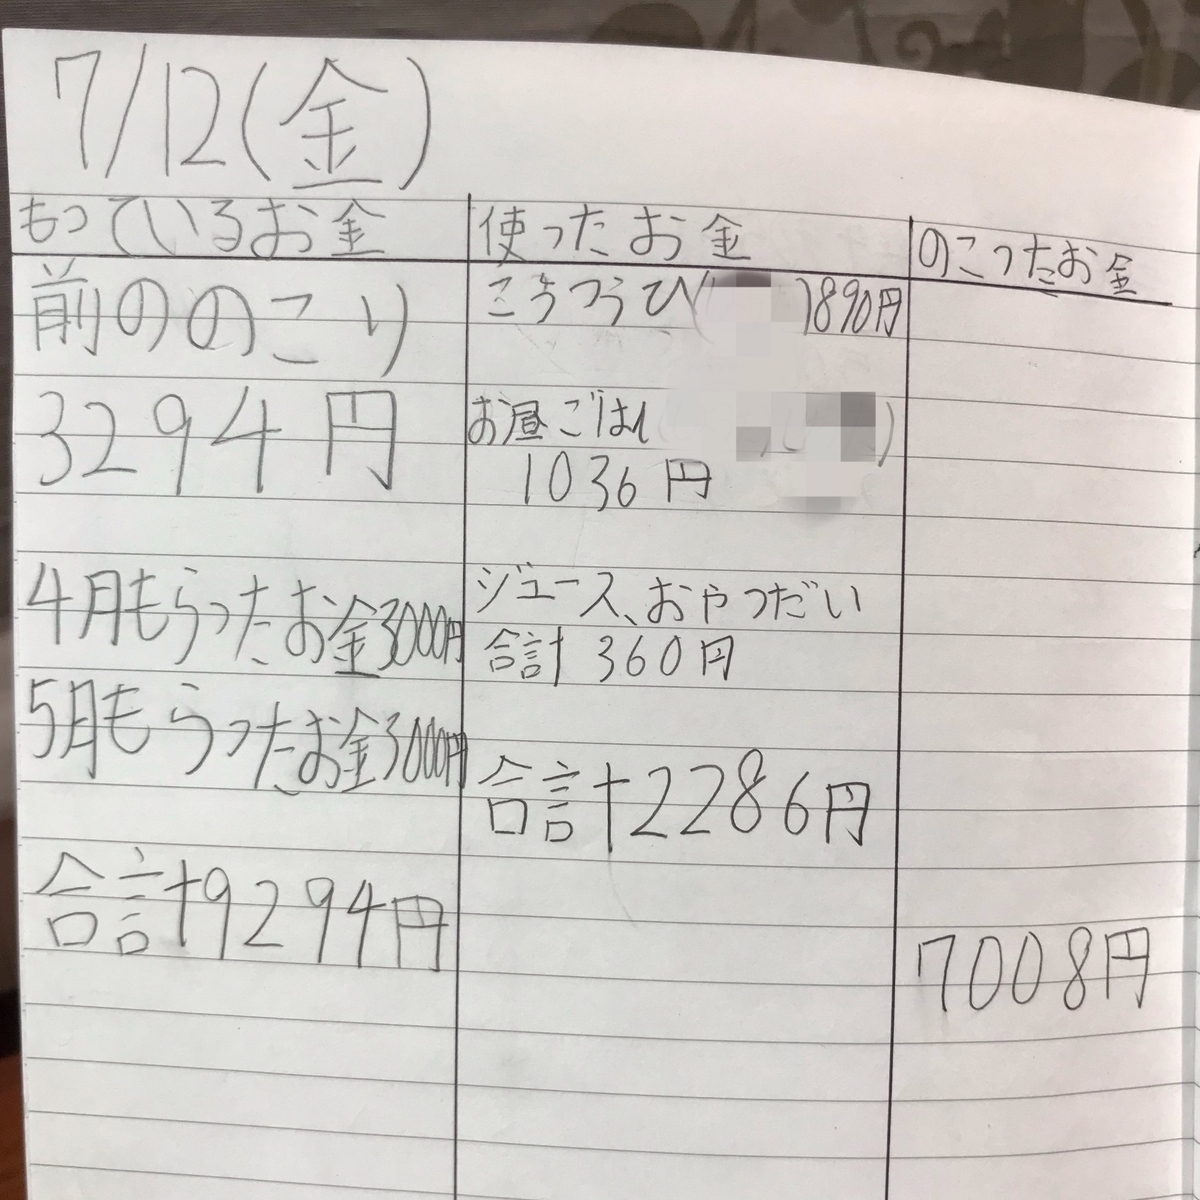 7/12(金)
もっているお金
前ののこり
3294円
4月もらったお金3000円
5月もらったお金3000円
合計9294円
使ったお金
こうつうひ( )890円
お昼ごはん( )
1036円
ジュース、おやつだい
合計 360円
合計2286円
のこったお金
7008円